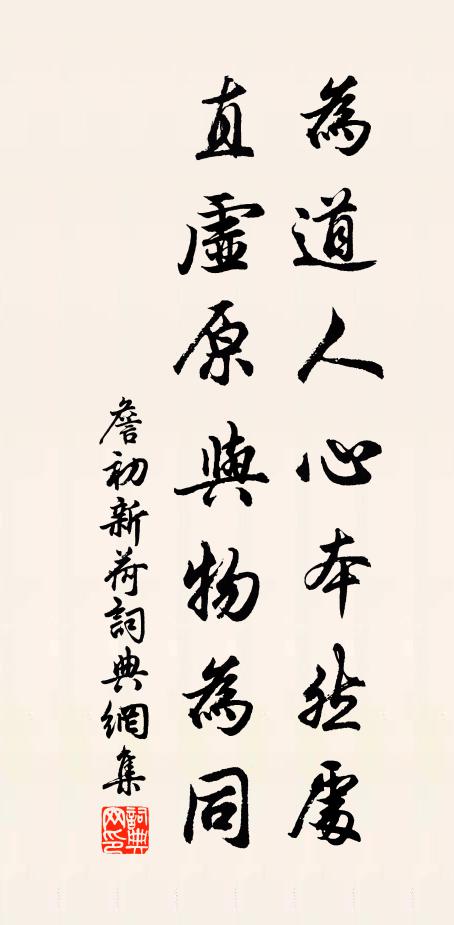 為道人心本然處
直虛原與物為同
詹初新荷詞典網集
詞典網印